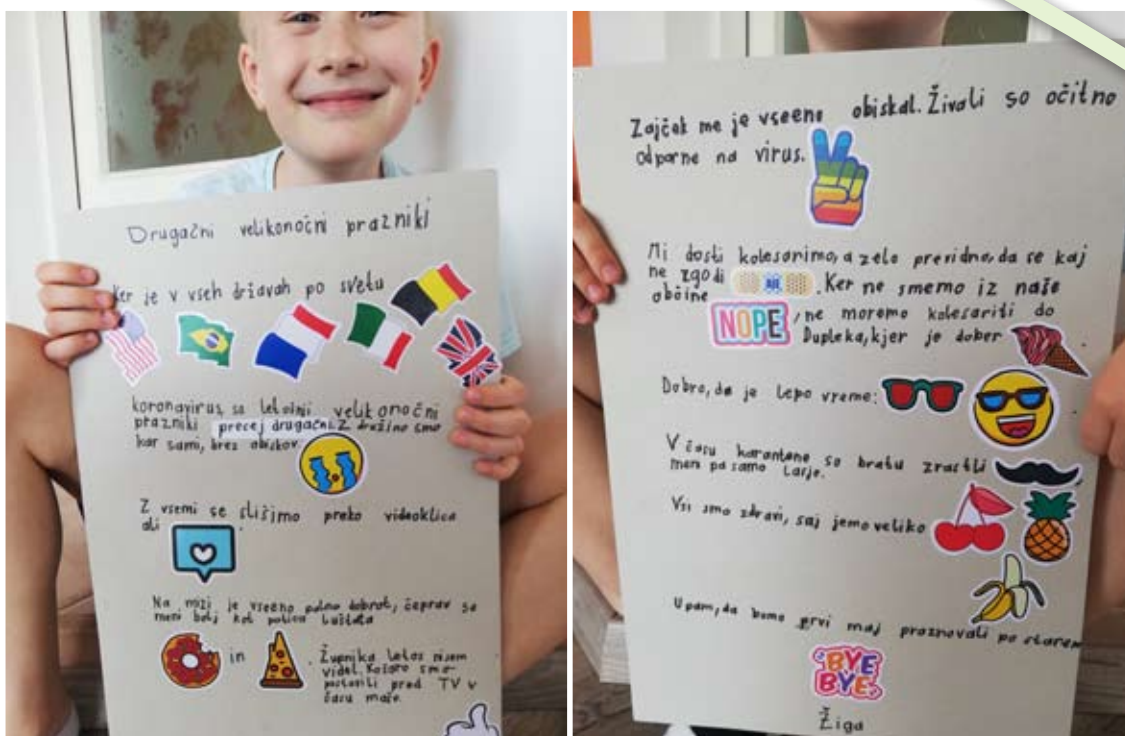 Drugačni velikonočni prazniki
Ker je v vseh državah po svetu
koronavirus, so letošnji velikonočni
prazniki precej drugačni. Z družino smo
kar sami, brez obiskov.
Z vsemi se slišimo preko videoklica
ali
Na mizi je vseeno polno dobrot, čeprav se
meni bolj kot potica luštata
in
. Župnika letos nisem
videl. Košaro smo
postavili pred TV v
času maše.
Zajček me je vseeno obiskal. Živali so očitno
odporne na virus.
Mi dosti kolesarimo, a zelo previdno, da se kaj
ne zgodi . Ker ne smemo iz naše
občine
NOPE , ne moremo kolesariti do
Dupleka, kjer je dober .
Dobro, da je lepo vreme: .
V času karantene so bratu zrastli ,
meni pa samo lasje.
Vsi smo zdravi, saj jemo veliko
Upam, da bomo prvi maj praznovali po starem
BYE
BYE
Žiga